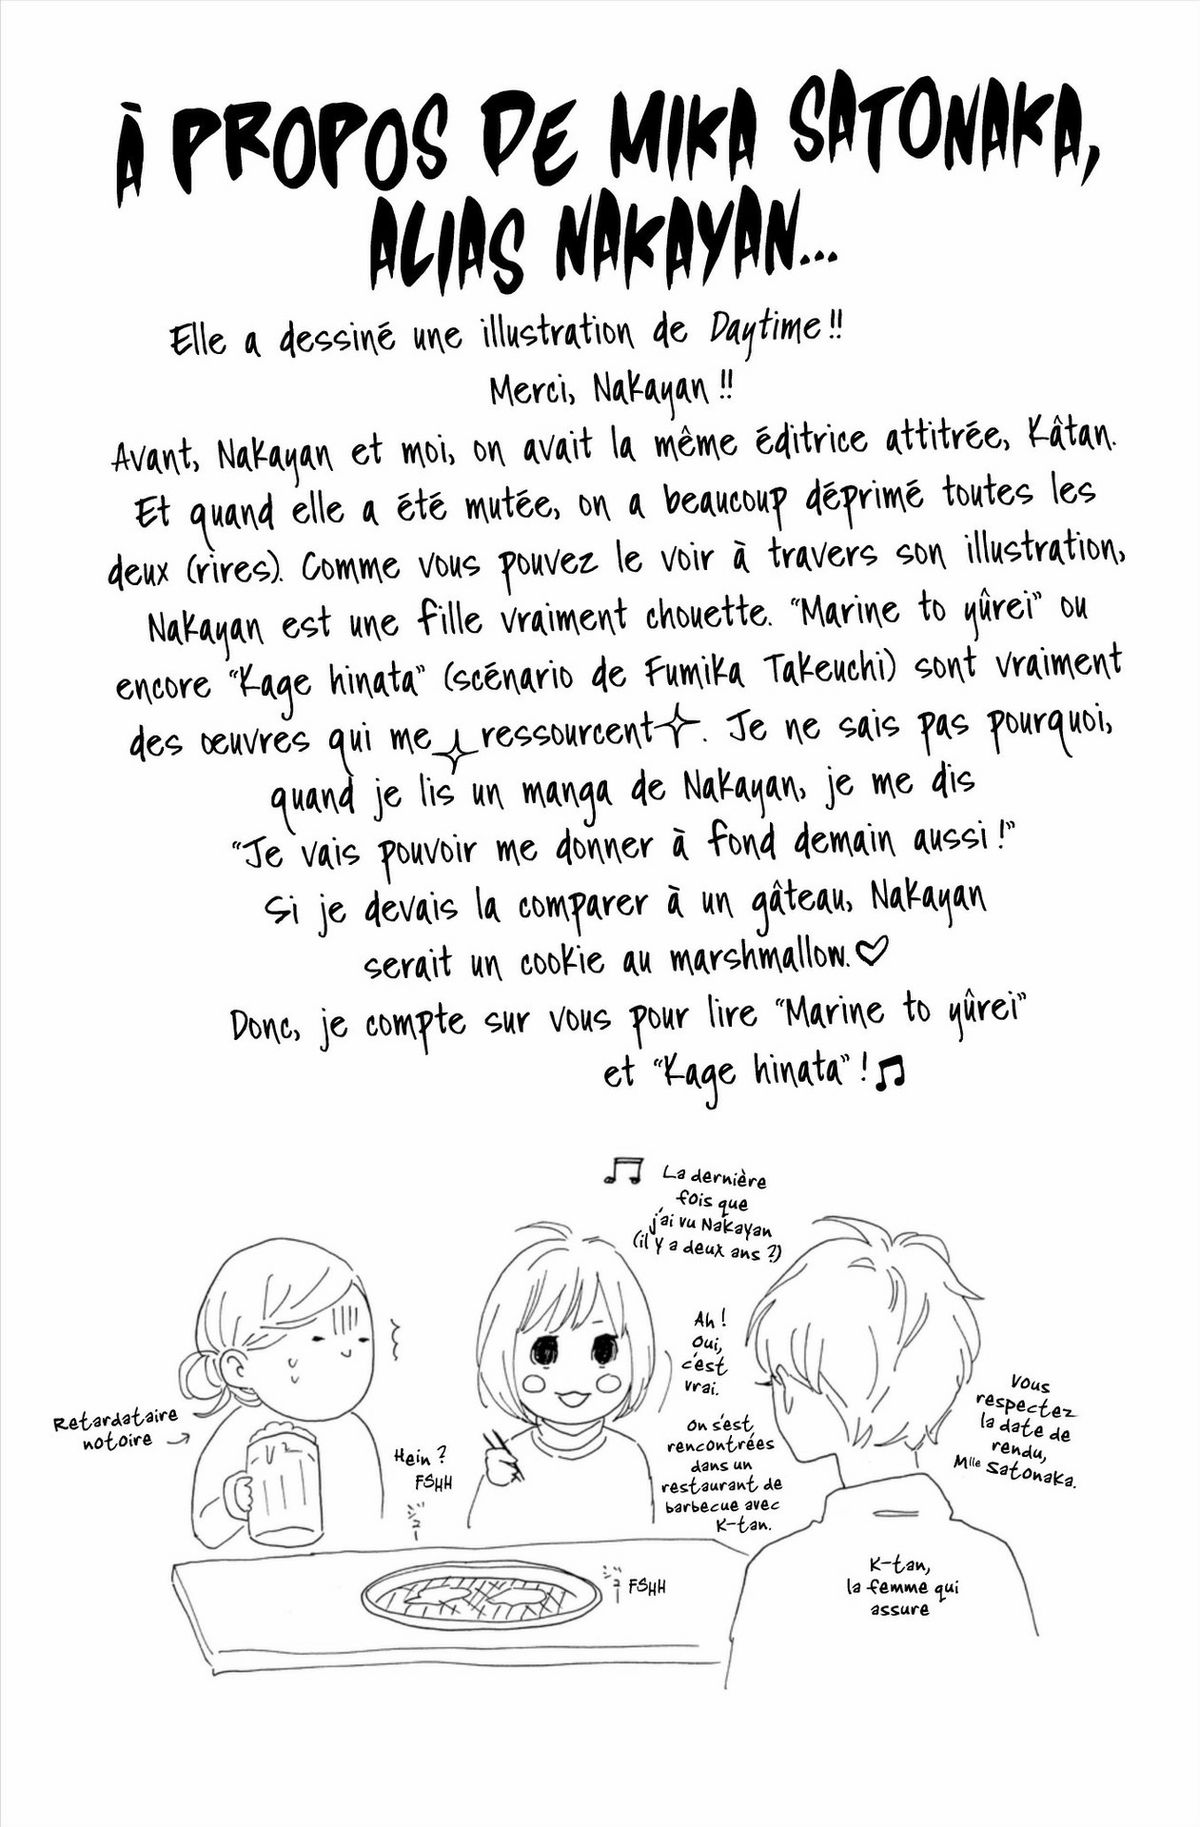 À PROPOS DE MIKA SATONAKA,
ALIAS NAKAYAN...
Elle a dessiné une illustration de Daytime !!
Merci, Nakayan !!
Avant, Nakayan et moi, on avait la même éditrice attitrée, Kâtan.
Et quand elle a été mutée, on a beaucoup déprimé toutes les
deux (rires). Comme vous pouvez le voir à travers son illustration,
Nakayan est une fille vraiment chouette. "Marine to yûrei" ou
encore "Kage hinata" (scénario de Fumika Takeuchi) sont vraiment
des œuvres qui me ressourcent. Je ne sais pas pourquoi,
quand je lis un manga de Nakayan, je me dis
"Je vais pouvoir me donner à fond demain aussi !"
Si je devais la comparer à un gâteau, Nakayan
serait un cookie au marshmallow.♡
Donc, je compte sur vous pour lire "Marine to yûrei"
et "Kage hinata" !♫
♫ La dernière
fois que
j'ai vu Nakayan
(il y a deux ans ?)
Retardataire
notoire
Hein ?
FSHH
Ah !
Oui,
c'est
vrai.
On s'est
rencontrées
dans un
restaurant de
barbecue avec
K-tan.
Vous
respectez
la date de
rendu,
Mlle Satonaka.
FSHH
K-tan,
la femme qui
assure